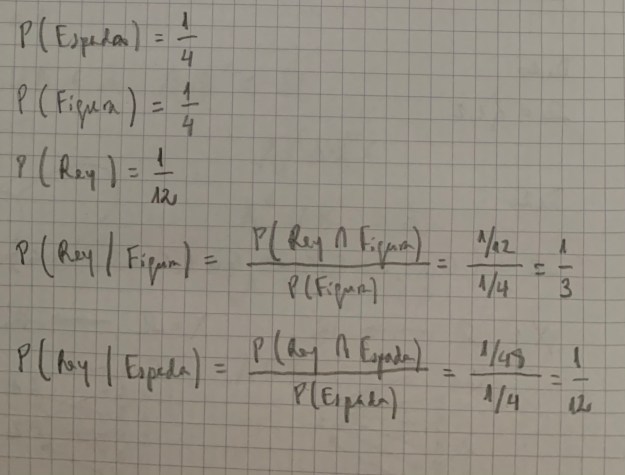 P(Espadas) = 1/4
P(Figura) = 1/4
P(Rey) = 1/12
P(Rey | Figura) = P(Rey ∩ Figura) / P(Figura) = (1/12) / (1/4) = 1/3
P(Rey | Espada) = P(Rey ∩ Espada) / P(Espada) = (1/48) / (1/4) = 1/12